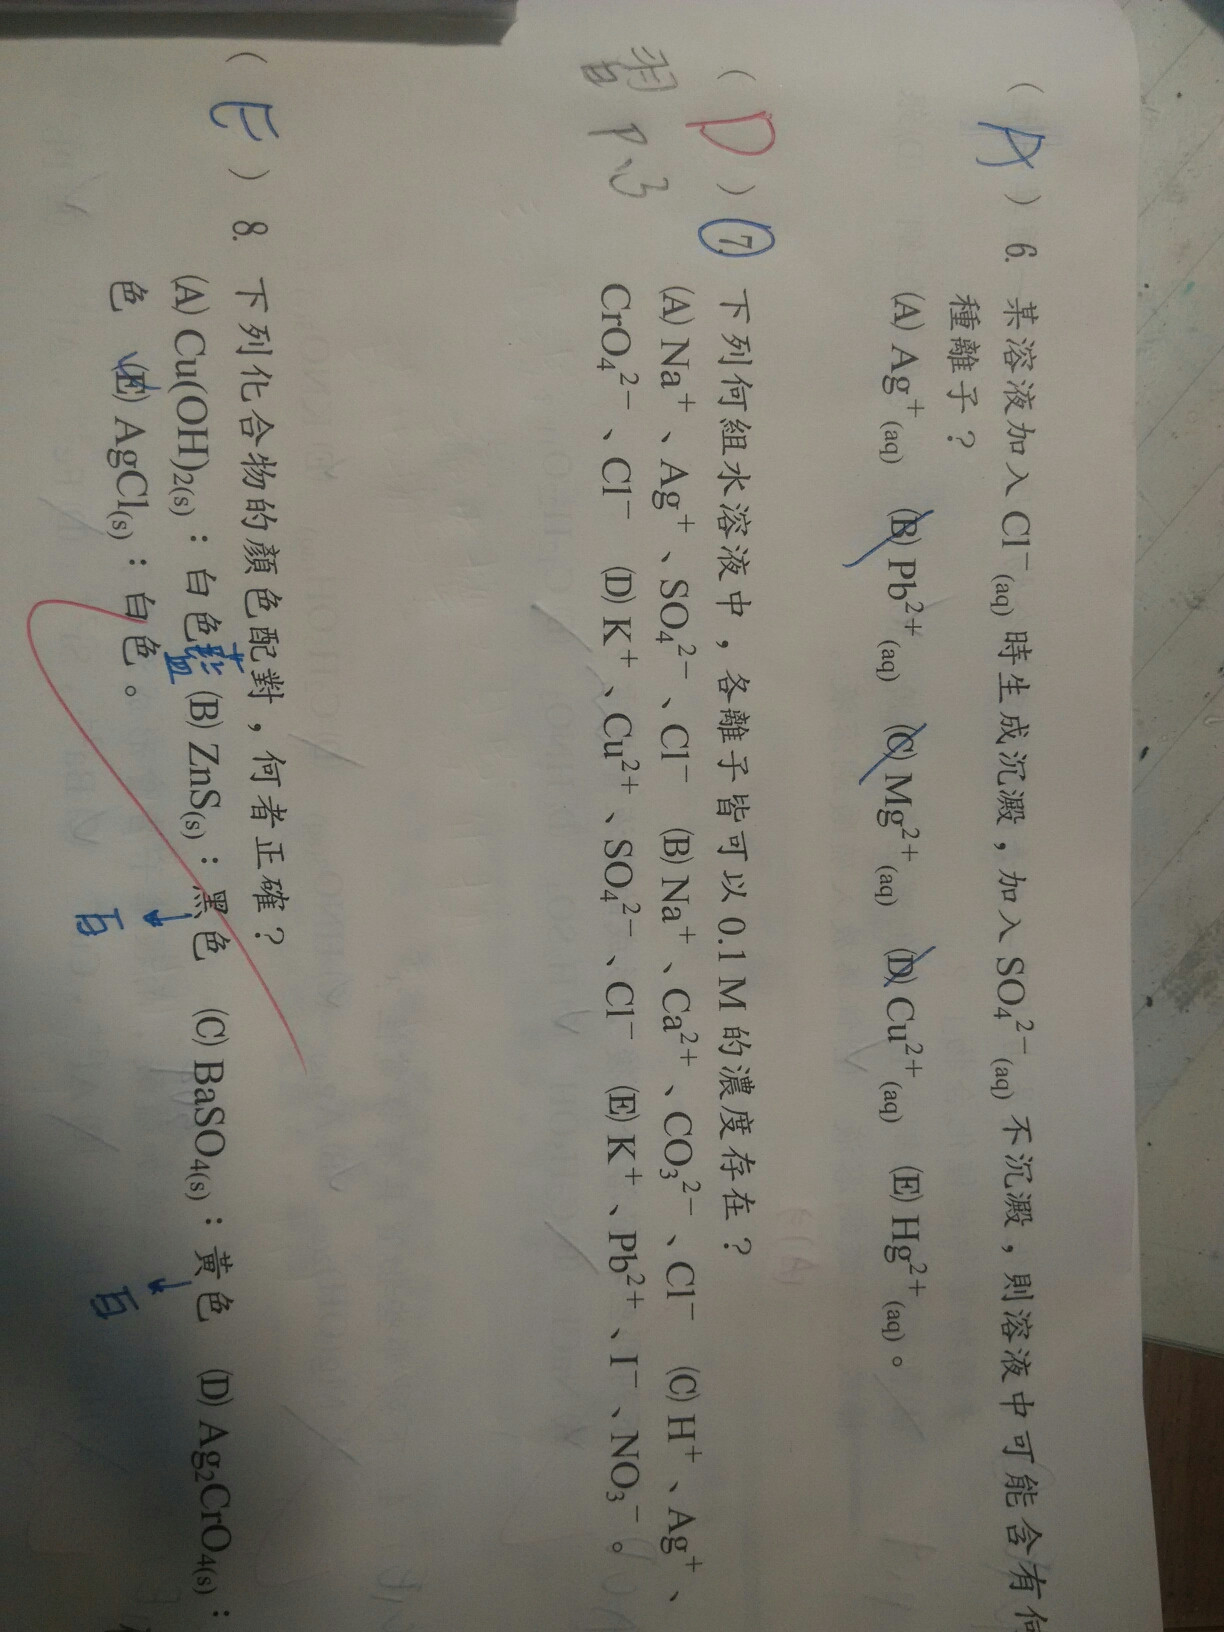 ( A ) 6. 某溶液加入 Cl⁻(aq) 時生成沉澱，加入 SO₄²⁻(aq) 不沉澱，則溶液中可能含有何
種離子？
(A) Ag⁺(aq) (B) Pb²⁺(aq) (C) Mg²⁺(aq) (D) Cu²⁺(aq) (E) Hg²⁺(aq)。
( D ) 7. 下列何組水溶液中，各離子皆可以 0.1 M 的濃度存在？
(A) Na⁺、Ag⁺、SO₄²⁻、Cl⁻ (B) Na⁺、Ca²⁺、CO₃²⁻、Cl⁻ (C) H⁺、Ag⁺、
CrO₄²⁻、Cl⁻ (D) K⁺、Cu²⁺、SO₄²⁻、Cl⁻ (E) K⁺、Pb²⁺、I⁻、NO₃⁻。
P.3
( E ) 8. 下列化合物的顏色配對，何者正確？
(A) Cu(OH)₂(s)：白色 藍 (B) ZnS(s)：黑色 (C) BaSO₄(s)：黃色 (D) Ag₂CrO₄(s)：
白 白
色 (E) AgCl(s)：白色。